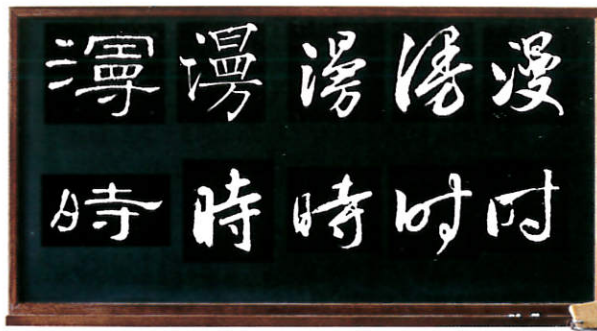 漫 漫 漫 漫 漫
時 時 時 时 时